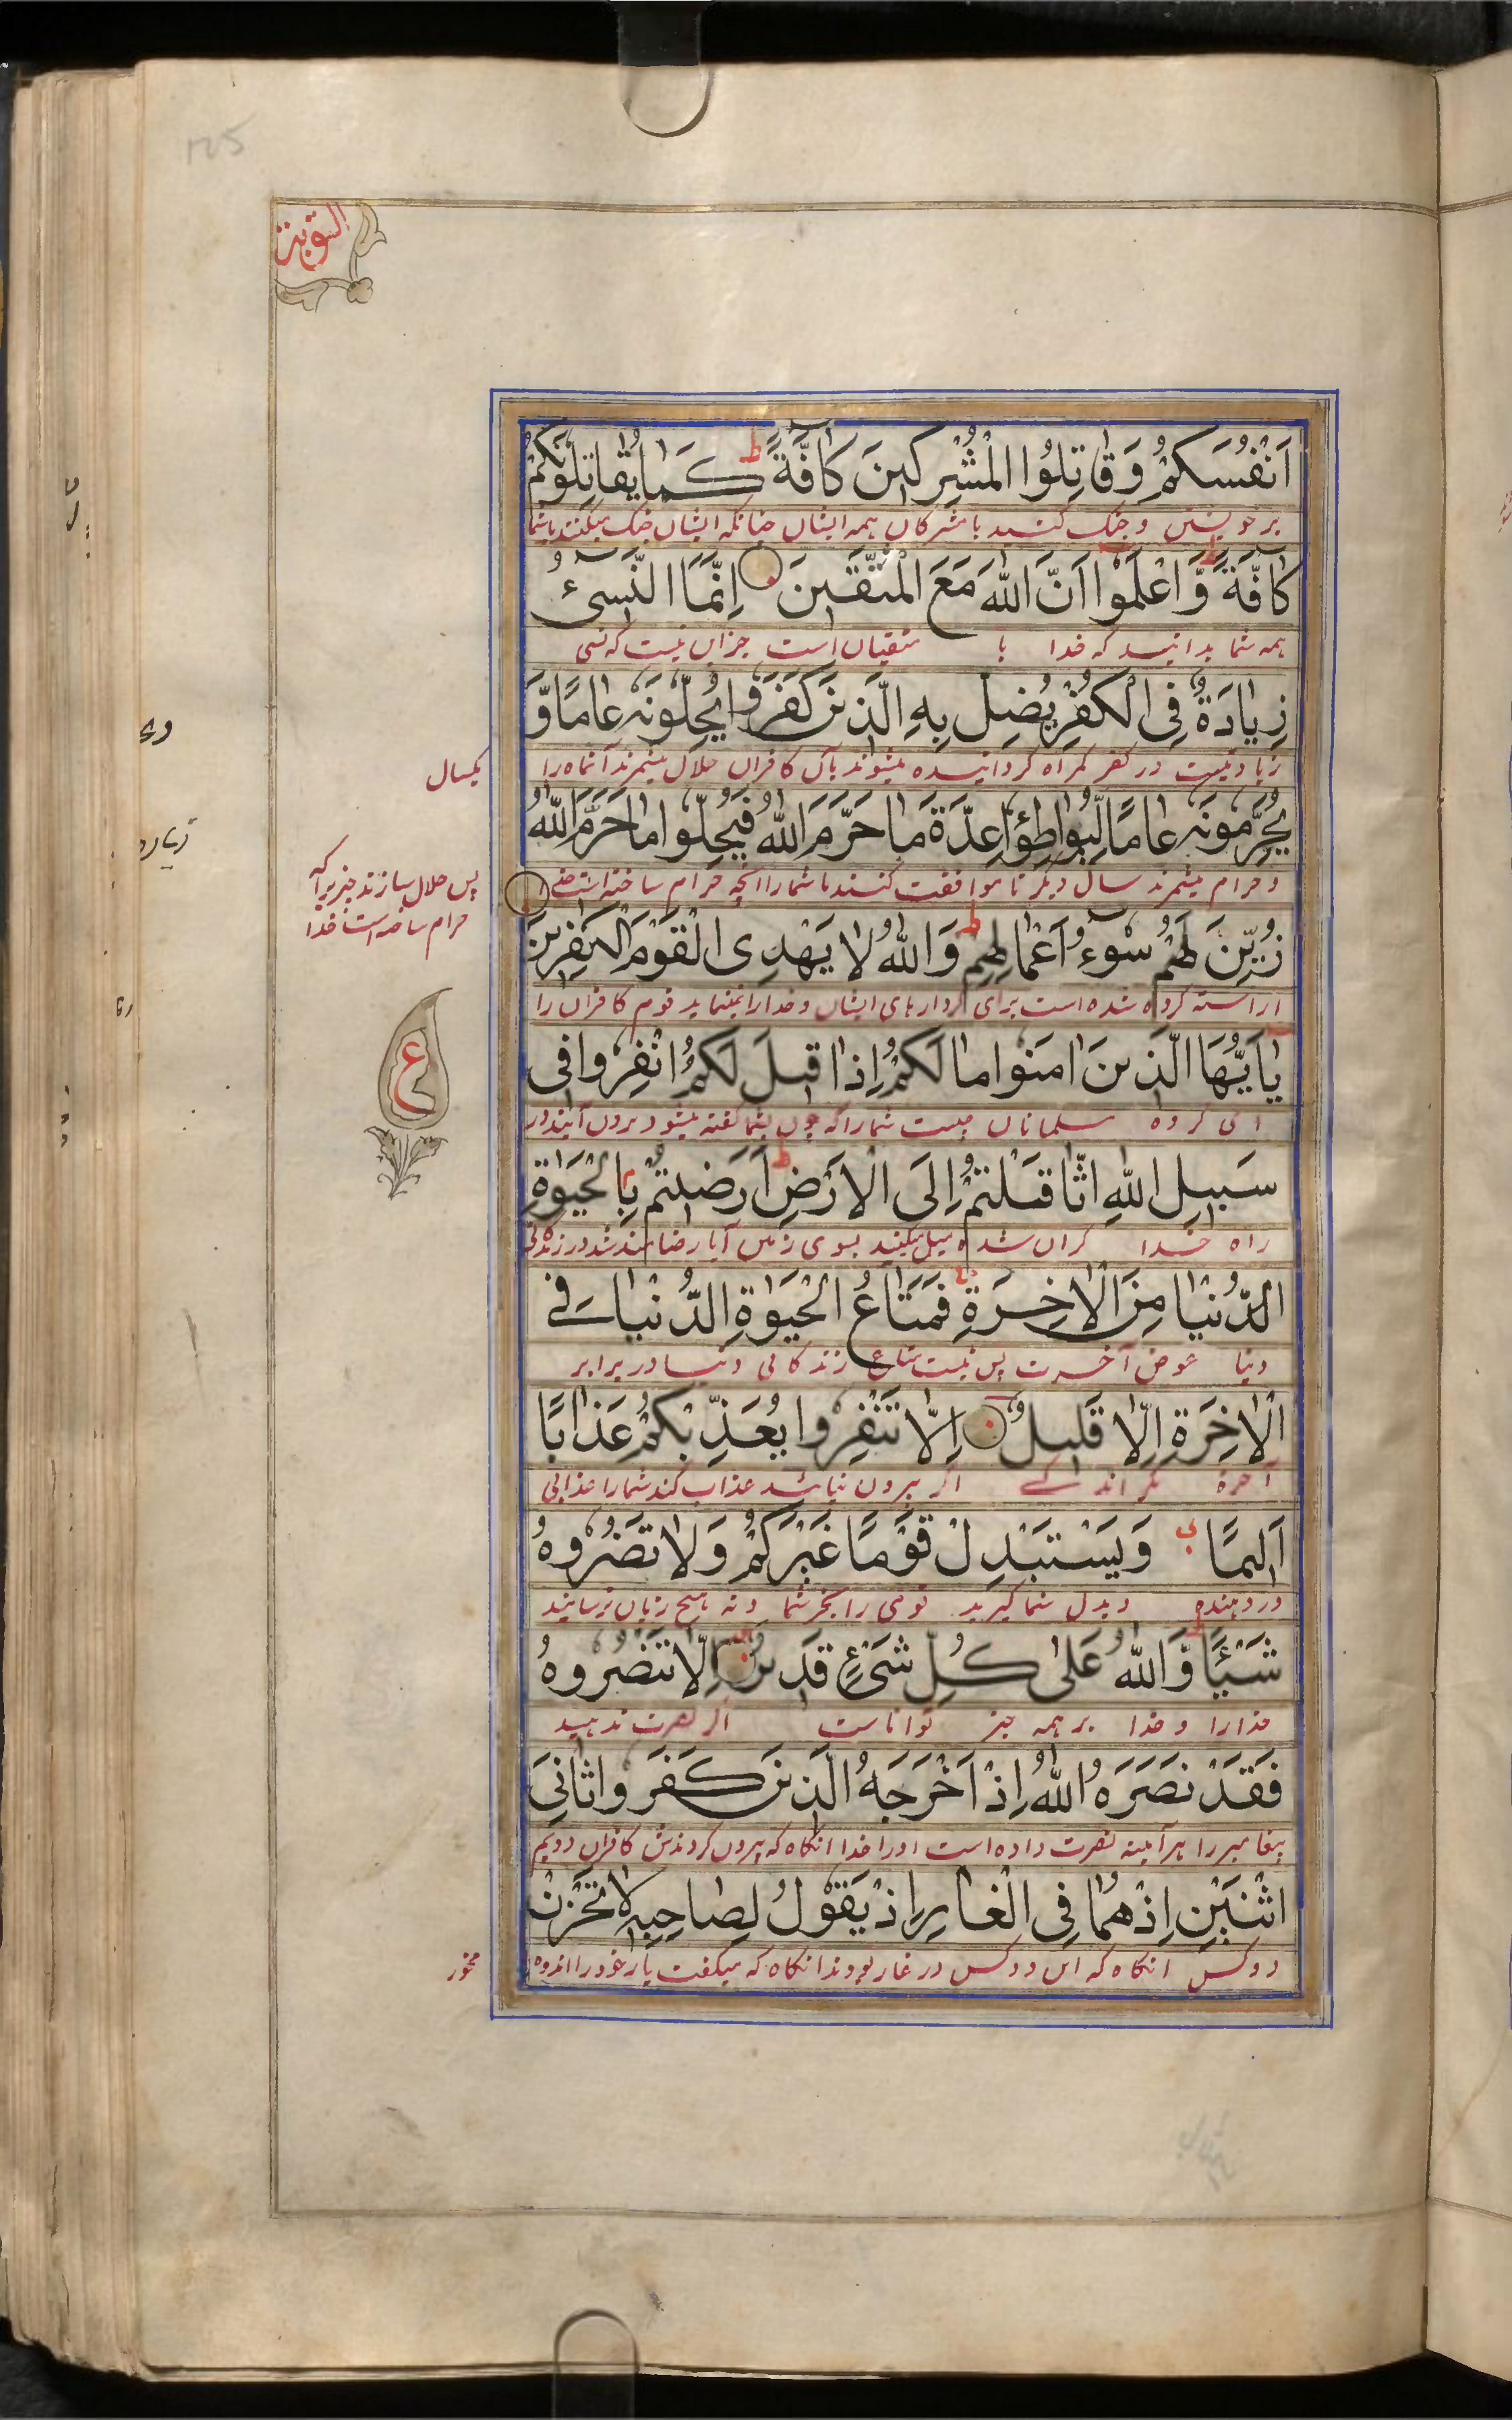 التوبة
اَنْفُسَكُمْ وَقَاتِلُوا الْمُشْرِكِينَ كَافَّةً ط كَمَا يُقَاتِلُونَكُمْ
بر خویشتن و جنک کنید با مشرکان همه ایشان چنانکه ایشان جنک میکنند باشما
كَافَّةً ط وَّاعْلَمُوا اَنَّ اللهَ مَعَ الْمُتَّقِينَ اِنَّمَا النَّسِيْءُ
همه شما بدانید که خدا با متقیان است جز این نیست که نسی
زِيَادَةٌ فِي الْكُفْرِ يُضَلُّ بِهِ الَّذِينَ كَفَرُوا يُحِلُّونَهٗ عَامًا وَّ
زیادتیست در کفر کمراه کردانیده میشوند بآن کافران حلال میشمرند آنماه را
یکسال
يُحَرِّمُونَهٗ عَامًا لِّيُوَاطِؤُا عِدَّةَ مَا حَرَّمَ اللهُ فَيُحِلُّوا مَا حَرَّمَ اللهُ
و حرام میشمرند سال دیکر تا موافقت کنند با شمار آنچه حرام ساخته است
پس حلال سازند چیزیرا که
حرام ساخته است خدا
زُيِّنَ لَهُمْ سُوْءُ اَعْمَالِهِمْ ط وَاللهُ لَا يَهْدِي الْقَوْمَ الْكٰفِرِينَ
اراسته کرده شده است برای کردارهای ایشان و خدا راه نمینماید قوم کافران را
يٰاَيُّهَا الَّذِينَ اٰمَنُوا مَا لَكُمْ اِذَا قِيلَ لَكُمُ انْفِرُوا فِي
ع
ای کروه مسلمانان چیست شمارا که چون بشما کفته میشود برون آیید در
سَبِيلِ اللهِ اثَّاقَلْتُمْ اِلَى الْاَرْضِ ط اَرَضِيتُمْ بِالْحَيٰوةِ
راه خدا کران شده میل میکنید بسوی زمین آیا رضامند شدید در زندکانی
الدُّنْيَا مِنَ الْاٰخِرَةِ فَمَتَاعُ الْحَيٰوةِ الدُّنْيَا فِي
دنیا عوض آخرت پس نیست متاع زندکانی دنیا در برابر
الْاٰخِرَةِ اِلَّا قَلِيلٌ اِلَّا تَنْفِرُوا يُعَذِّبْكُمْ عَذَابًا
آخرة مکر اندکے اکر بیرون نیائید عذاب کند شمارا عذابی
اَلِيمًا وَيَسْتَبْدِلْ قَوْمًا غَيْرَكُمْ وَلَا تَضُرُّوهُ
درد دهنده و بدل شما کیرید قومی را بجز شما و نه هیچ زیان نرسانید
شَيْئًا ط وَّاللهُ عَلٰى كُلِّ شَيْءٍ قَدِيرٌ اِلَّا تَنْصُرُوهُ
خدا را و خدا بر همه چیز تواناست اکر نصرت ندهید
فَقَدْ نَصَرَهُ اللهُ اِذْ اَخْرَجَهُ الَّذِينَ كَفَرُوا ثَانِيَ
پیغامبر را هرآیینه نصرت داده است اورا خدا آنکاه که بیرون کردندش کافران دویم
اثْنَيْنِ اِذْ هُمَا فِي الْغَارِ اِذْ يَقُولُ لِصَاحِبِهٖ لَا تَحْزَنْ
دو کس آنکاه که این دو کس در غار بودند آنکاه که میکفت یار خود را اندوه
مخور